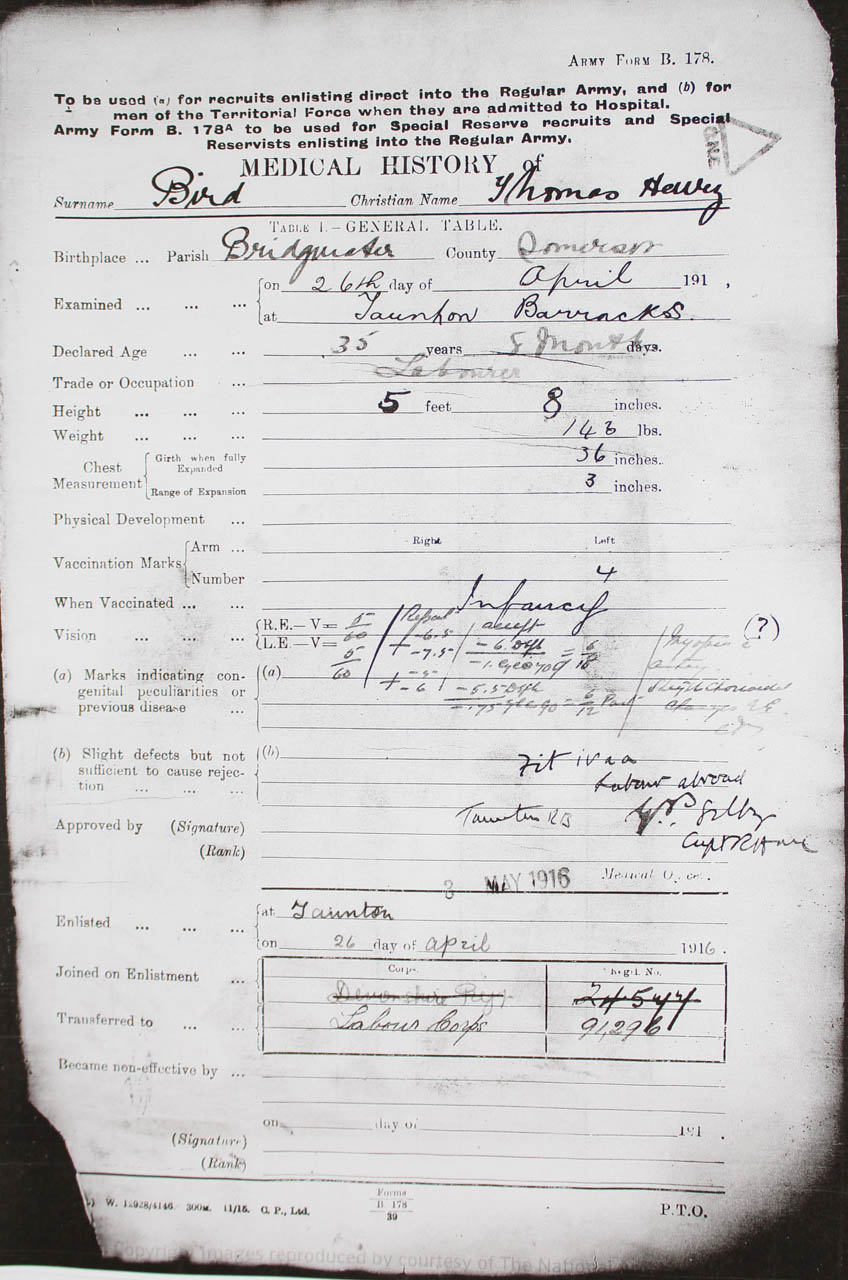 ARMY FORM B. 178.
To be used (a) for recruits enlisting direct into the Regular Army, and (b) for
men of the Territorial Force when they are admitted to Hospital.
Army Form B. 178A to be used for Special Reserve recruits and Special
Reservists enlisting into the Regular Army.
G.N.E
MEDICAL HISTORY of
Surname Bird Christian Name Thomas Henry
TABLE I.—GENERAL TABLE.
Birthplace ... Parish Bridgwater County Somerset
Examined ... ... ... on 26th day of April 191 ,
at Taunton Barracks.
Declared Age ... ... 35 years 8 Months days.
Trade or Occupation ... Labourer
Height ... ... ... 5 feet 8 inches.
Weight ... ... ... 143 lbs.
Chest Measurement Girth when fully Expanded 36 inches.
Range of Expansion 3 inches.
Physical Development ...
Right Left
Vaccination Marks Arm ...
Number 4
When Vaccinated ... ... Infancy
Vision ... ... ... R.E.—V= 5/60
L.E.—V= 5/60
+ -6.5
-7.5
-6. = 6/18
+ -5
-6
-5.5 = 6/12 Part
Myopic
(?)
(a) Marks indicating con-
genital peculiarities or
previous disease ...
(a)
(b) Slight defects but not
sufficient to cause rejec-
tion ... ... ...
(b)
Fit
Labour abroad
Approved by (Signature) Taunton
(Rank) Capt
3 MAY 1916 Medical Officer.
Enlisted ... ... at Taunton
on 26 day of April 1916 .
Corps. Regtl. No.
Joined on Enlistment ... Devonshire Regt 24544
Transferred to ... ... Labour Corps 91,296
Became non-effective by ...
on day of 191 .
(Signature)
(Rank)
W. 12928/4146. 300M. 11/15. C. P., Ltd.
Forms
B. 178
39
P.T.O.
Copyright Images reproduced by courtesy of The National